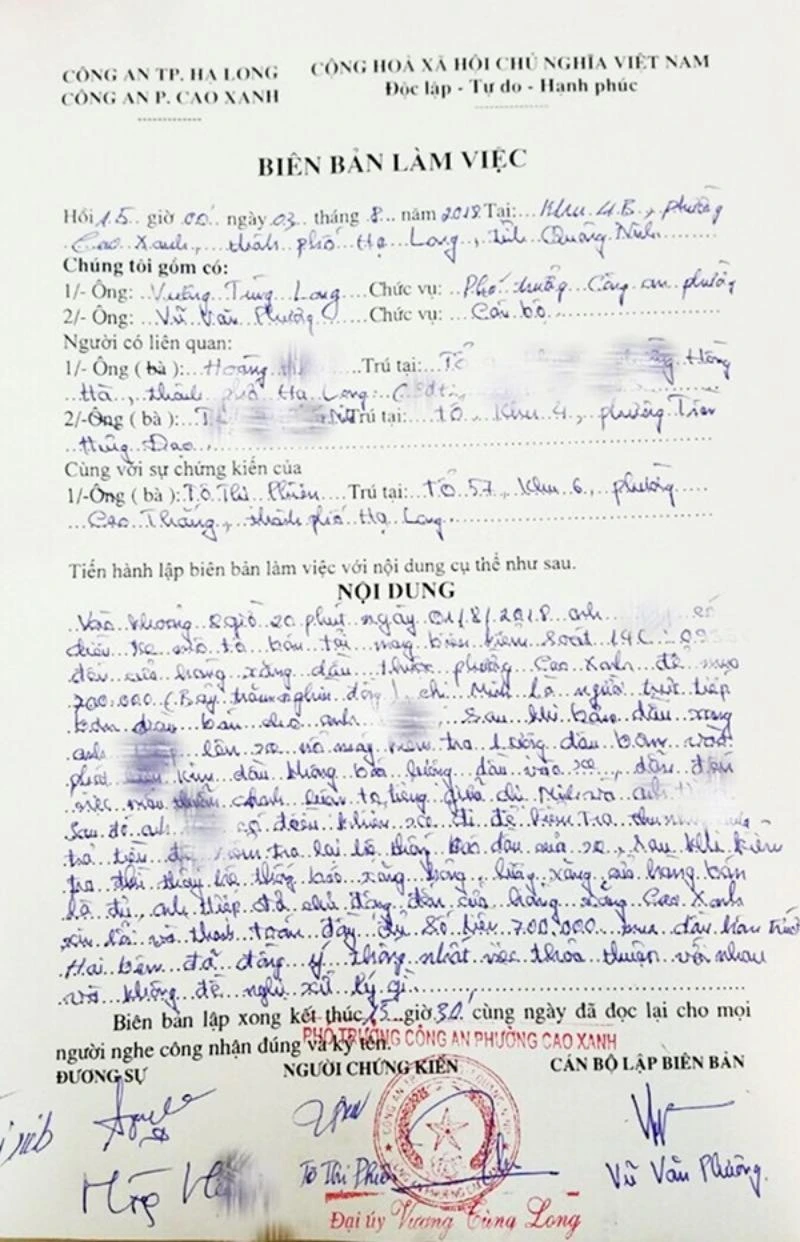 CÔNG AN TP. HẠ LONG
CÔNG AN P. CAO XANH
CỘNG HOÀ XÃ HỘI CHỦ NGHĨA VIỆT NAM
Độc lập - Tự do - Hạnh phúc
BIÊN BẢN LÀM VIỆC
Hồi 15 giờ 00 ngày 03 tháng 8 năm 2018 Tại: Khu 4B, phường
Cao Xanh, thành phố Hạ Long, tỉnh Quảng Ninh
Chúng tôi gồm có:
1/- Ông: Vương Tùng Long Chức vụ: Phó trưởng Công an phường
2/- Ông: Vũ Văn Phường Chức vụ: Cán bộ
Người có liên quan:
1/- Ông ( bà ): Hoàng Trú tại: Tổ Hồng
Hà, thành phố Hạ Long
2/-Ông ( bà ): Trú tại: tổ, Khu 4, phường Trần
Hưng Đạo
Cùng với sự chứng kiến của
1/-Ông ( bà ): Tô Thị Phiên Trú tại: Tổ 57, Khu 6, phường
Cao Thắng, thành phố Hạ Long
Tiến hành lập biên bản làm việc với nội dung cụ thể như sau.
NỘI DUNG
Vào khoảng 8 giờ 20 phút ngày 01/8/2018 anh có
điều xe ô tô bán tải mang biển kiểm soát 14C
đến cửa hàng xăng dầu thuộc phường Cao Xanh để mua
700.000 (Bảy trăm nghìn đồng) chị Minh là người trực tiếp
bơm dầu bán cho anh Sau khi bơm dầu xong
anh lên xe nổ máy kiểm tra lượng dầu bơm vào
phát kim dầu không báo lượng dầu vào xe, dẫn đến
việc mâu thuẫn tranh luận to tiếng giữa chị Minh và anh
Sau đó anh có điều khiển xe đi để kiểm tra
trả tiền kiểm tra lại hệ thống báo dầu của xe, Sau khi kiểm
tra thì thấy hệ thống báo xăng hỏng, lượng xăng cửa hàng bán
là đủ, anh Hiệp đã chủ động đến cửa hàng xăng Cao Xanh
xin lỗi và thanh toán đầy đủ số tiền 700.000 mua dầu hôm trước
Hai bên đã đồng ý thống nhất việc thỏa thuận với nhau
và không đề nghị xử lý gì
Biên bản lập xong kết thúc 15 giờ 30' cùng ngày đã đọc lại cho mọi
người nghe công nhận đúng và ký tên.
PHÓ TRƯỞNG CÔNG AN PHƯỜNG CAO XANH
ĐƯƠNG SỰ NGƯỜI CHỨNG KIẾN CÁN BỘ LẬP BIÊN BẢN
Tô Thị Phiên
Vũ Văn Phường
Đại úy Vương Tùng Long